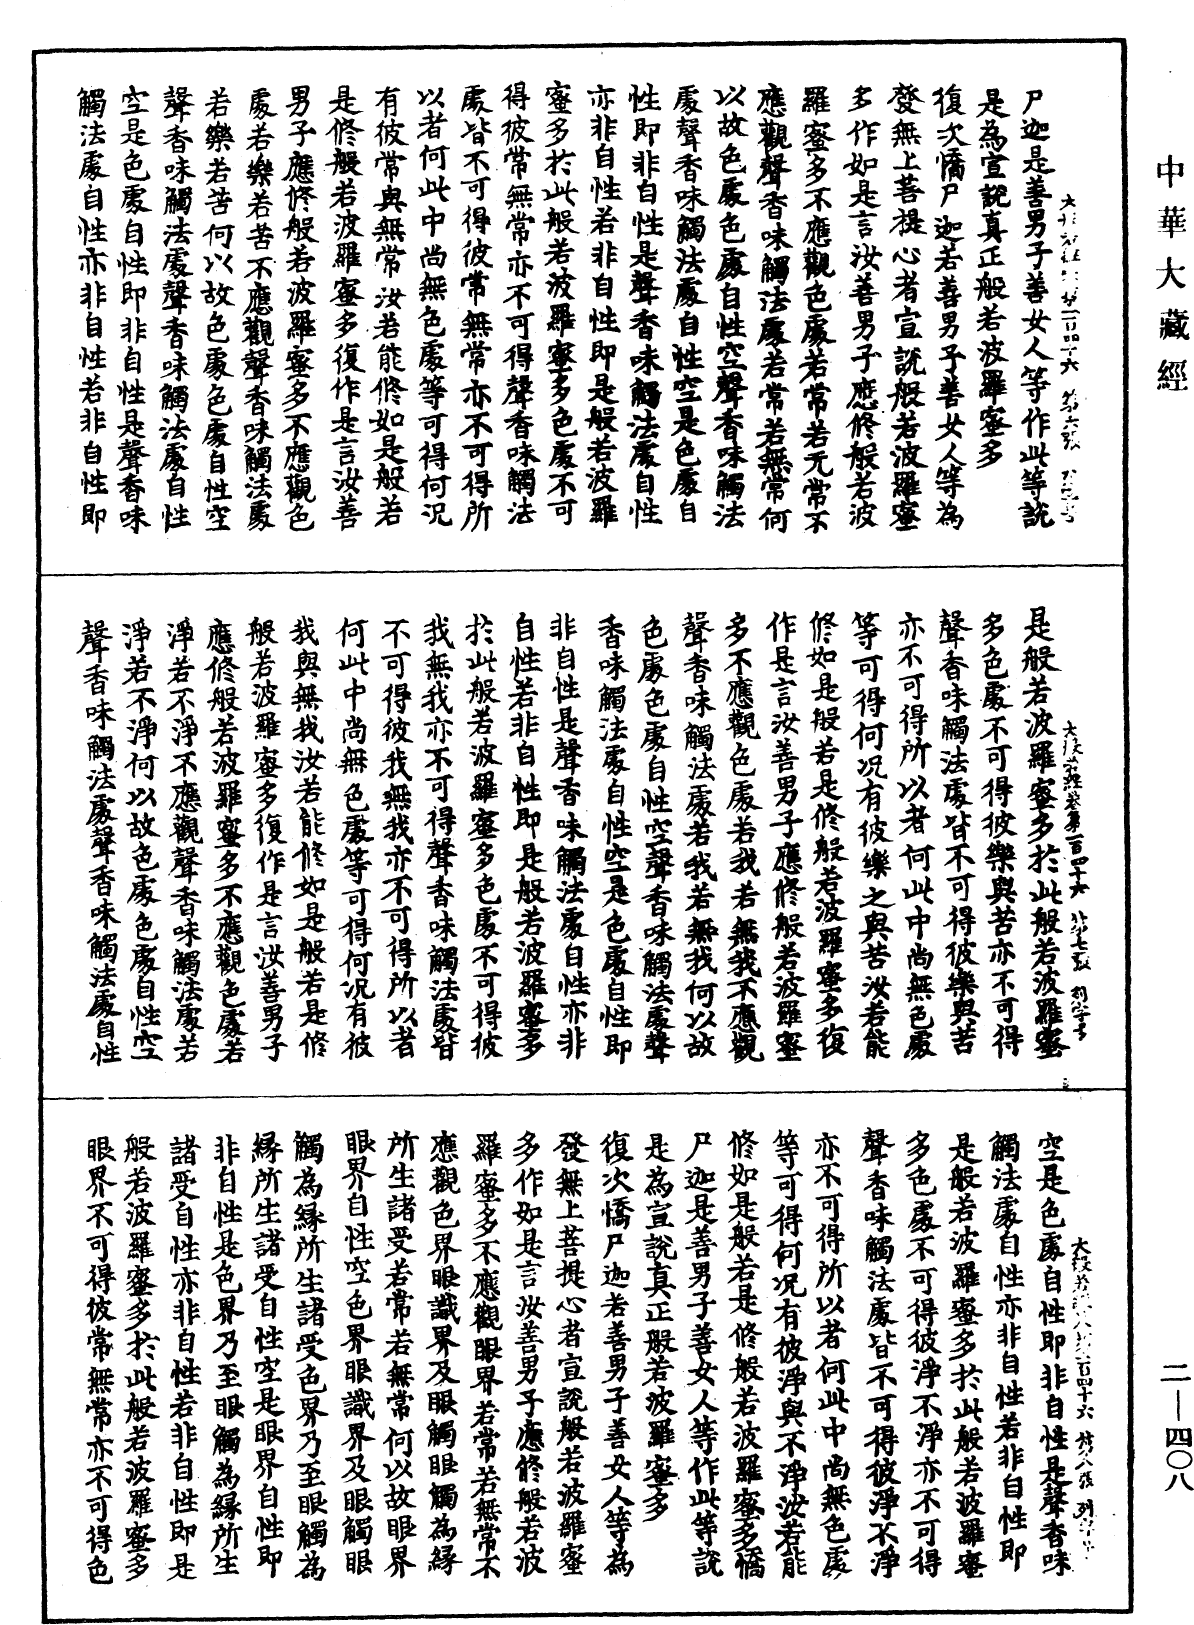 中華大藏經
尸迦是善男子善女人等作此等說
是為宣說真正般若波羅蜜多
復次憍尸迦若善男子善女人等為
發無上菩提心者宣說般若波羅蜜
多作如是言汝善男子應修般若波
羅蜜多不應觀色處若常若无常不
應觀聲香味觸法處若常若無常何
以故色處色處自性空聲香味觸法
處聲香味觸法處自性空是色處自
性即非自性是聲香味觸法處自性
亦非自性若非自性即是般若波羅
蜜多於此般若波羅蜜多色處不可
得彼常無常亦不可得聲香味觸法
處皆不可得彼常無常亦不可得所
以者何此中尚無色處等可得何況
有彼常與無常汝若能修如是般若
是修般若波羅蜜多復作是言汝善
男子應修般若波羅蜜多不應觀色
處若樂若苦不應觀聲香味觸法處
若樂若苦何以故色處色處自性空
聲香味觸法處聲香味觸法處自性
空是色處自性即非自性是聲香味
觸法處自性亦非自性若非自性即
大般若經卷第一百四十六 第七張 列字号
是般若波羅蜜多於此般若波羅蜜
多色處不可得彼樂與苦亦不可得
聲香味觸法處皆不可得彼樂與苦
亦不可得所以者何此中尚無色處
等可得何況有彼樂之與苦汝若能
修如是般若是修般若波羅蜜多復
作是言汝善男子應修般若波羅蜜
多不應觀色處若我若無我不應觀
聲香味觸法處若我若無我何以故
色處色處自性空聲香味觸法處聲
香味觸法處自性空是色處自性即
非自性是聲香味觸法處自性亦非
自性若非自性即是般若波羅蜜多
於此般若波羅蜜多色處不可得彼
我無我亦不可得聲香味觸法處皆
不可得彼我無我亦不可得所以者
何此中尚無色處等可得何況有彼
我與無我汝若能修如是般若是修
般若波羅蜜多復作是言汝善男子
應修般若波羅蜜多不應觀色處若
淨若不淨不應觀聲香味觸法處若
淨若不淨何以故色處色處自性空
聲香味觸法處聲香味觸法處自性
空是色處自性即非自性是聲香味
觸法處自性亦非自性若非自性即
是般若波羅蜜多於此般若波羅蜜
多色處不可得彼淨不淨亦不可得
聲香味觸法處皆不可得彼淨不淨
亦不可得所以者何此中尚無色處
等可得何況有彼淨與不淨汝若能
修如是般若是修般若波羅蜜多憍
尸迦是善男子善女人等作此等說
是為宣說真正般若波羅蜜多
復次憍尸迦若善男子善女人等為
發無上菩提心者宣說般若波羅蜜
多作如是言汝善男子應修般若波
羅蜜多不應觀眼界若常若無常不
應觀色界眼識界及眼觸眼觸為緣
所生諸受若常若無常何以故眼界
眼界自性空色界眼識界及眼觸眼
觸為緣所生諸受色界乃至眼觸為
緣所生諸受自性空是眼界自性即
非自性是色界乃至眼觸為緣所生
諸受自性亦非自性若非自性即是
般若波羅蜜多於此般若波羅蜜多
眼界不可得彼常無常亦不可得色
二—四〇八